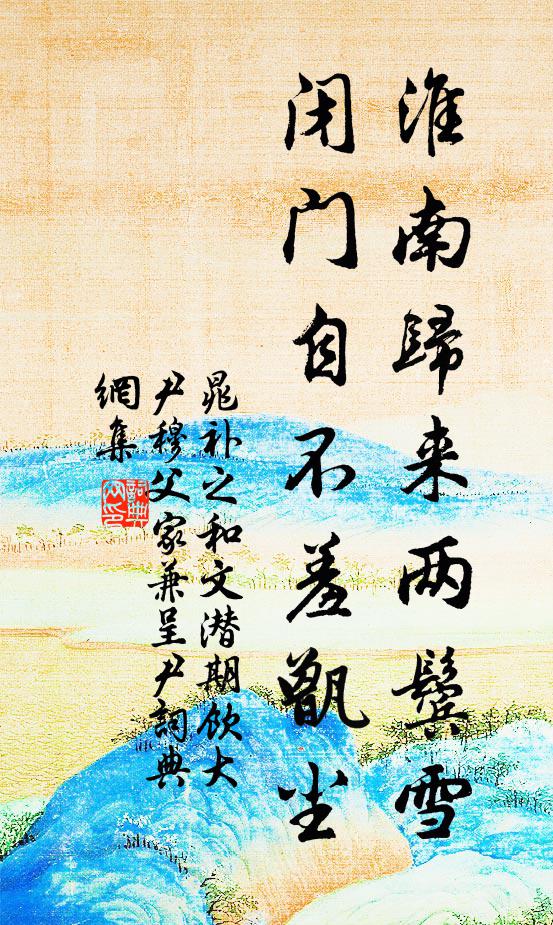 淮南歸来两鬓雪
闭门自不羞甑尘
晁补之和文潜期饮大
尹穆父家兼呈尹詞典
網集